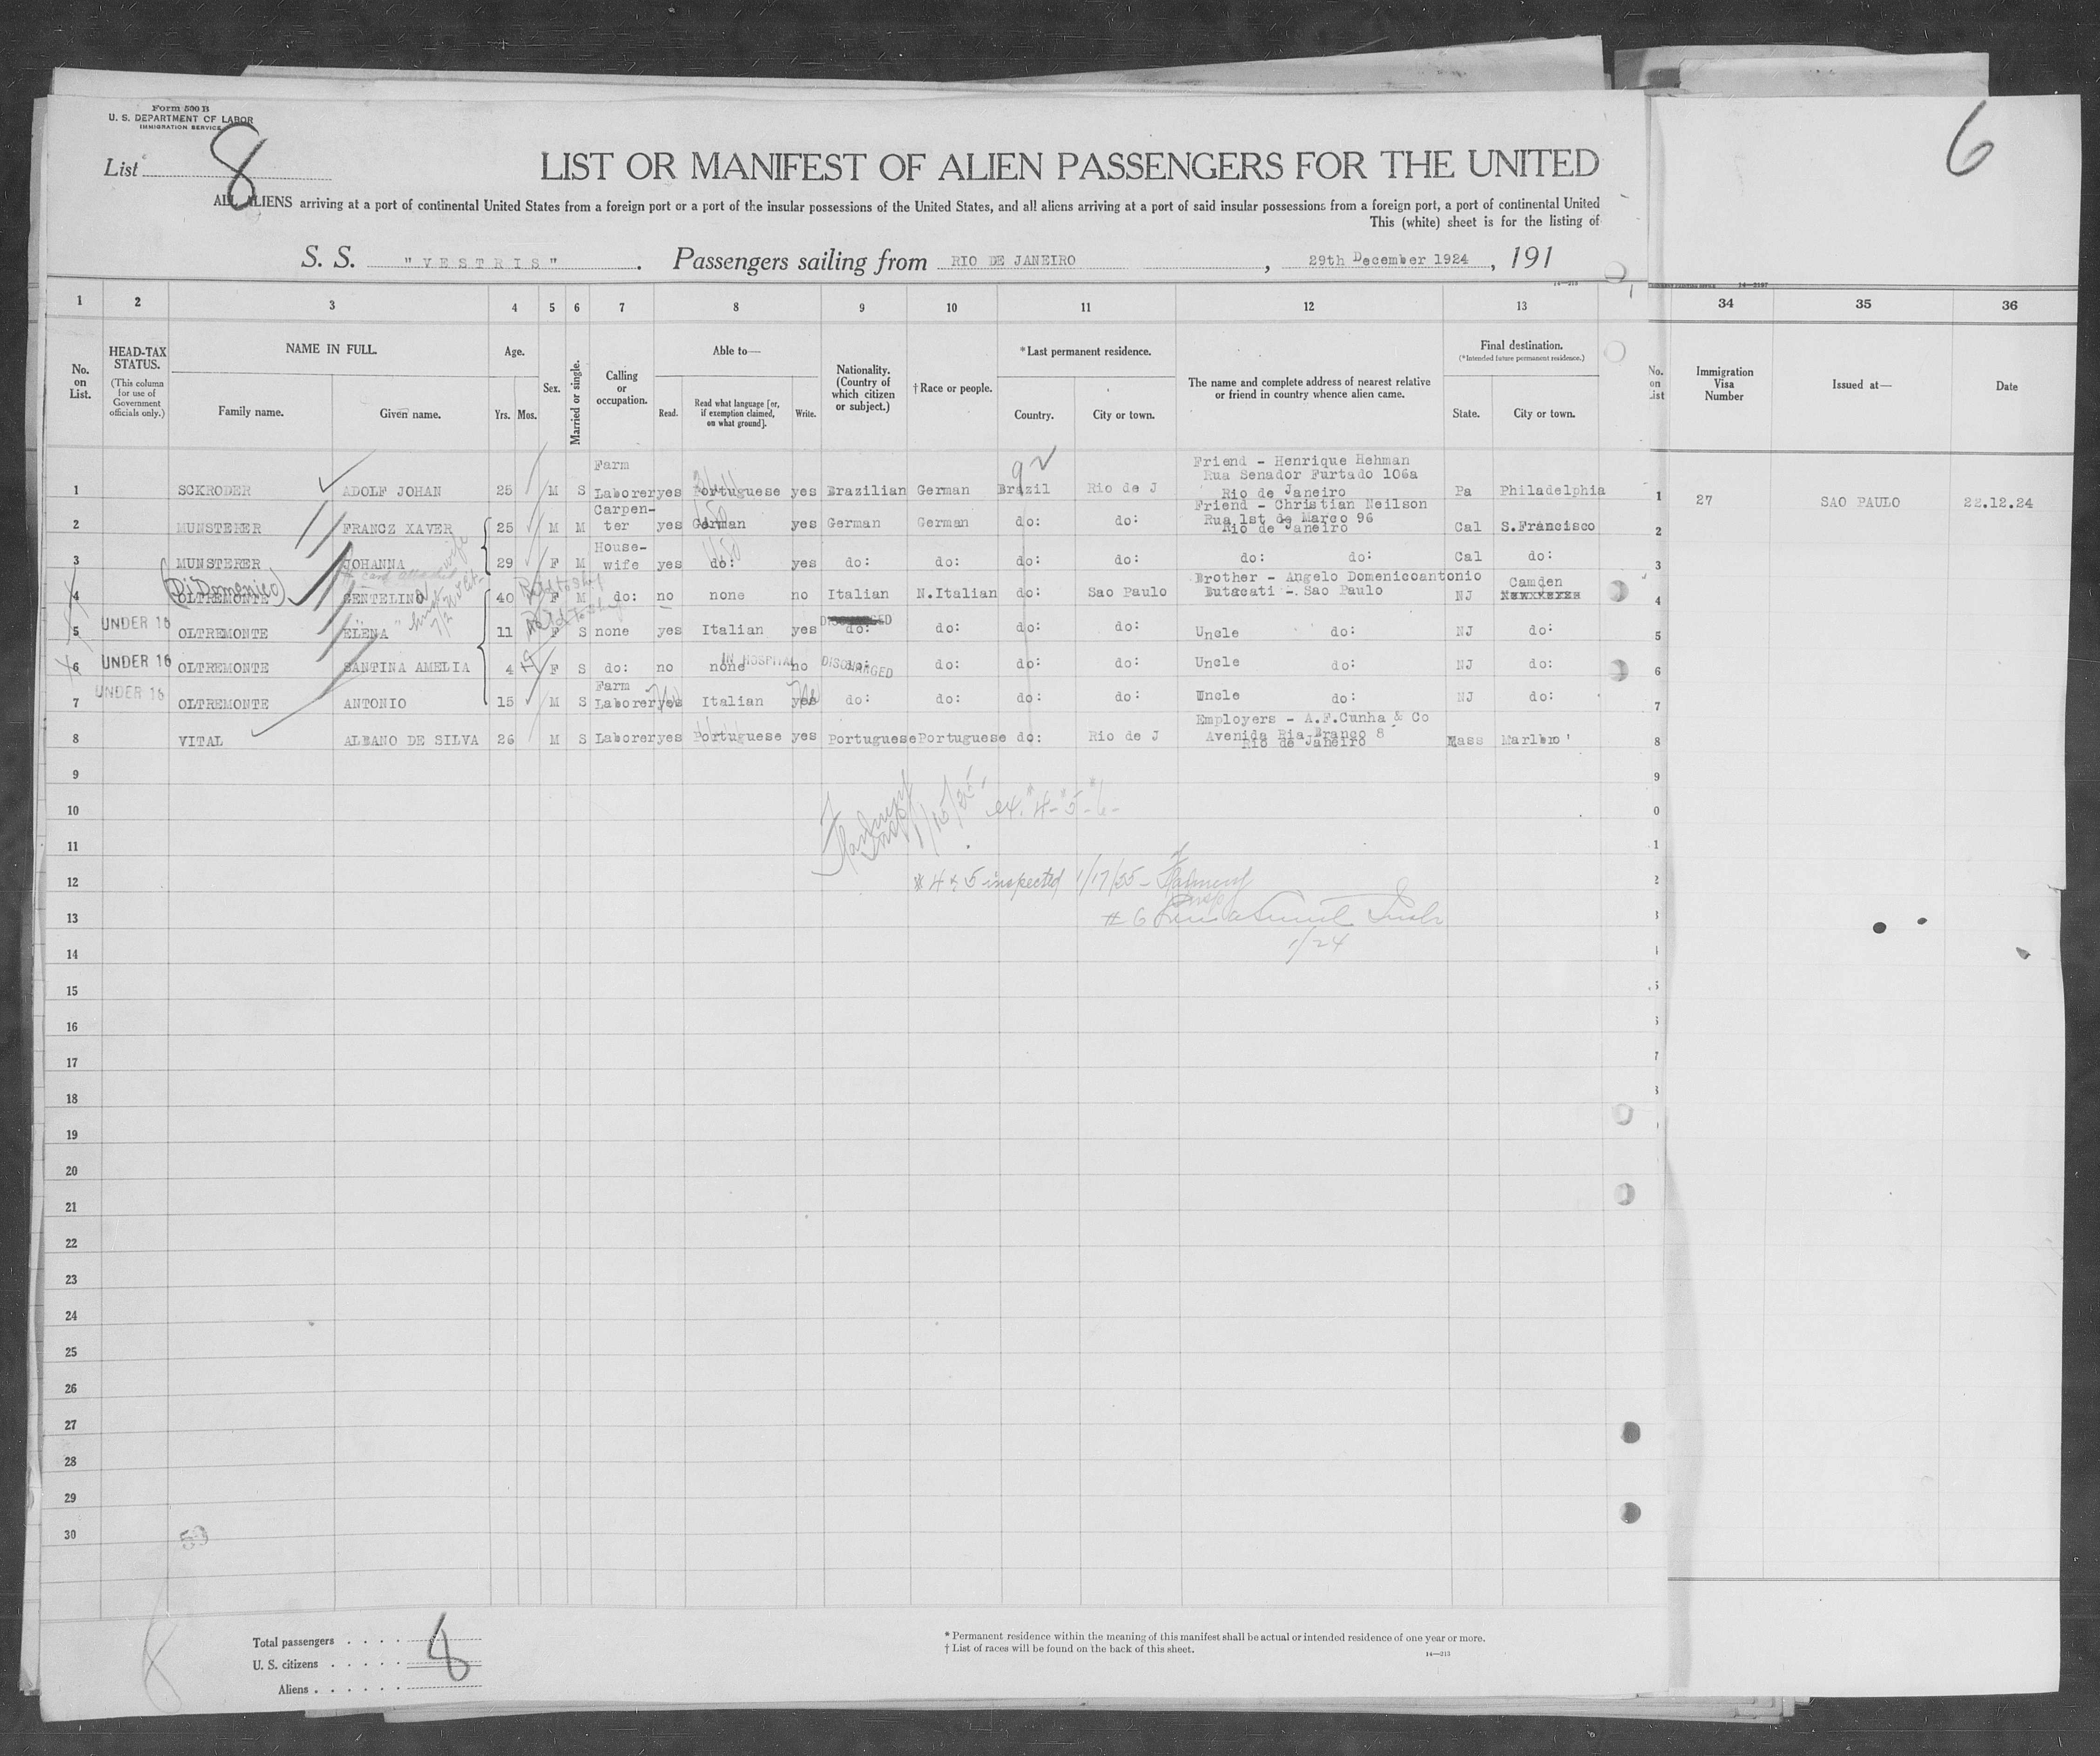 Form 500 B
U. S. DEPARTMENT OF LABOR
IMMIGRATION SERVICE
List 8
6
LIST OR MANIFEST OF ALIEN PASSENGERS FOR THE UNITED
ALL ALIENS arriving at a port of continental United States from a foreign port or a port of the insular possessions of the United States, and all aliens arriving at a port of said insular possessions from a foreign port, a port of continental United
This (white) sheet is for the listing of
S. S. "VESTRIS". Passengers sailing from RIO DE JANEIRO, 29th December 1924, 191
1 2 3 4 5 6 7 8 9 10 11 12 13 34 35 36
No. on List.
HEAD-TAX STATUS.
(This column for use of Government officials only.)
NAME IN FULL.
Family name. Given name.
Age.
Yrs. Mos.
Sex.
Married or single.
Calling or occupation.
Able to—
Read. Read what language [or, if exemption claimed, on what ground]. Write.
Nationality. (Country of which citizen or subject.)
†Race or people.
*Last permanent residence.
Country. City or town.
The name and complete address of nearest relative or friend in country whence alien came.
Final destination.
(*Intended future permanent residence.)
State. City or town.
No. on List
Immigration Visa Number
Issued at—
Date
1 SCKRODER ADOLF JOHAN 25 M S Farm Laborer yes Portuguese yes Brazilian German Brazil Rio de J Friend - Henrique Hehman Rua Senador Furtado 106a Rio de Janeiro Pa Philadelphia 1 27 SAO PAULO 22.12.24
2 MUNSTERER FRANCZ XAVER 25 M M Carpen-ter yes German yes German German do: do: Friend - Christian Neilson Rua 1st de Março 96 Rio de Janeiro Cal S.Francisco 2
3 MUNSTERER JOHANNA 29 F M House-wife yes do: yes do: do: do: do: do: do: Cal do: 3
(Di Domenico)
4 OLTREMONTE SENTELINO 40 F M do: no none no Italian N.Italian do: Sao Paulo Brother - Angelo Domenicoantonio Butacati - Sao Paulo NJ Camden 4
5 UNDER 16 OLTREMONTE ELENA 11 F S none yes Italian yes do: do: do: do: Uncle do: NJ do: 5
6 UNDER 16 OLTREMONTE SANTINA AMELIA 4 F S do: no none IN HOSPITAL no do: DISCHARGED do: do: do: Uncle do: NJ do: 6
7 UNDER 16 OLTREMONTE ANTONIO 15 M S Farm Laborer yes Italian yes do: do: do: do: Uncle do: NJ do: 7
8 VITAL ALBANO DE SILVA 26 M S Laborer yes Portuguese yes Portuguese Portuguese do: Rio de J Employers - A.F.Cunha & Co Avenida Ria Branco 8 Rio de Janeiro Mass Marlbro' 8
9
10
11
12 # 4 & 5 inspected 1/17/25
13 # 6
14 1/24
15
16
17
18
19
20
21
22
23
24
25
26
27
28
29
30
59
Total passengers . . . . 8
U. S. citizens . . . . .
Aliens . . . . . .
* Permanent residence within the meaning of this manifest shall be actual or intended residence of one year or more.
† List of races will be found on the back of this sheet.
14—213